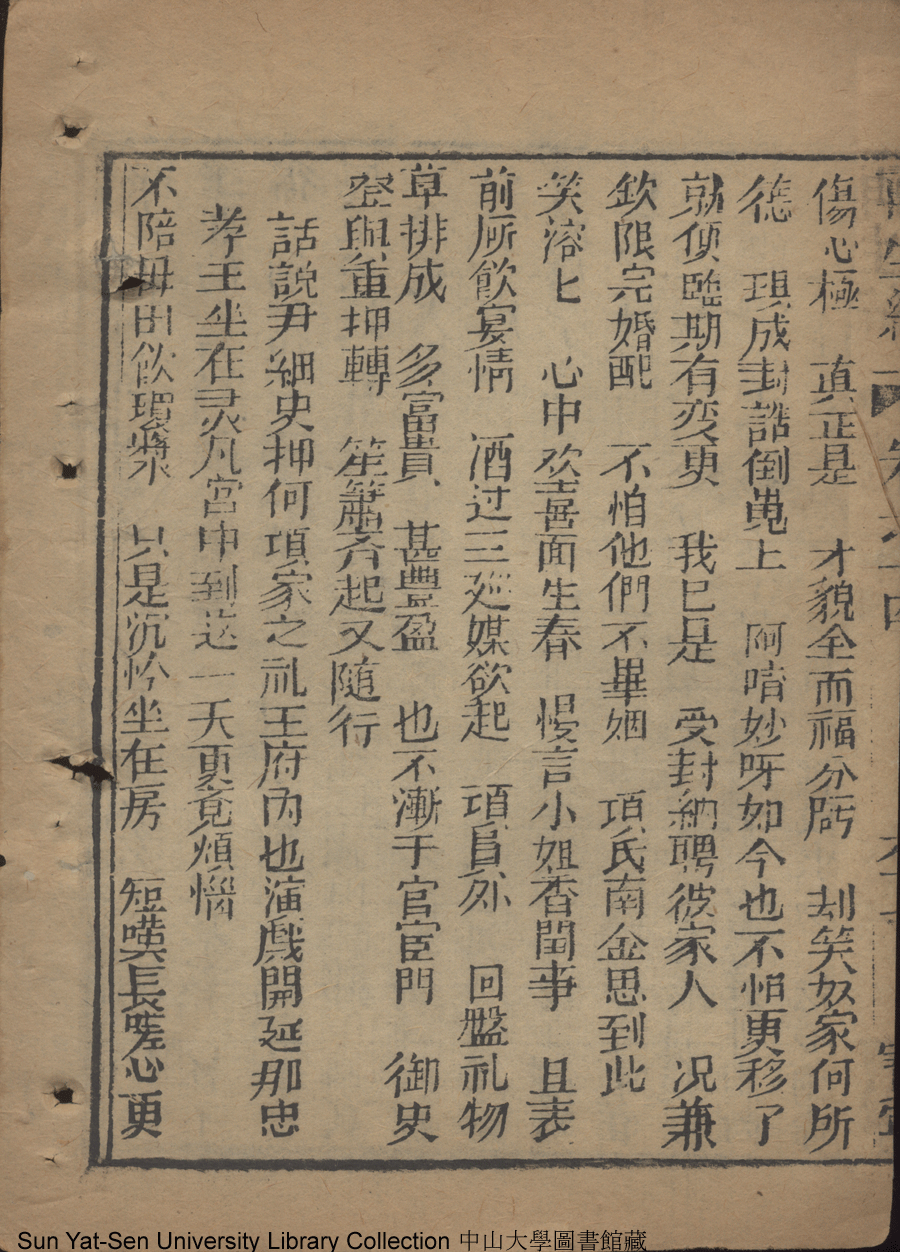 傷心極 真正是 才貌全而福分 刦笑奴家何所
徳 現成封誥倒嵬上 阿唷妙呀如今也不怕更移了
就使臨期有变更 我已是 受封納聘彼家人 况兼
欽限完婚配 不怕他們不畢姻 項氏南金思到此
笑溶匕 心中坌喜面生春 慢言小姐香閨事 且表
前厛飲宴情 酒过三廵媒欲起 項員外 回盤礼物
草排成 多富貴 甚豐盈 也不漸于官宦門 御史
登與重押轉 笙簫齐起又隨行
話說尹細史押何項家之礼王府內也演戲開延那忠
孝王坐在灵凡宮中到这一天更竟煩惱
不陪毋田飲環漿 只是沉怜坐在房 短嘆長嗟心更
Sun Yat-Sen University Library Collection 中山大學圖書館藏